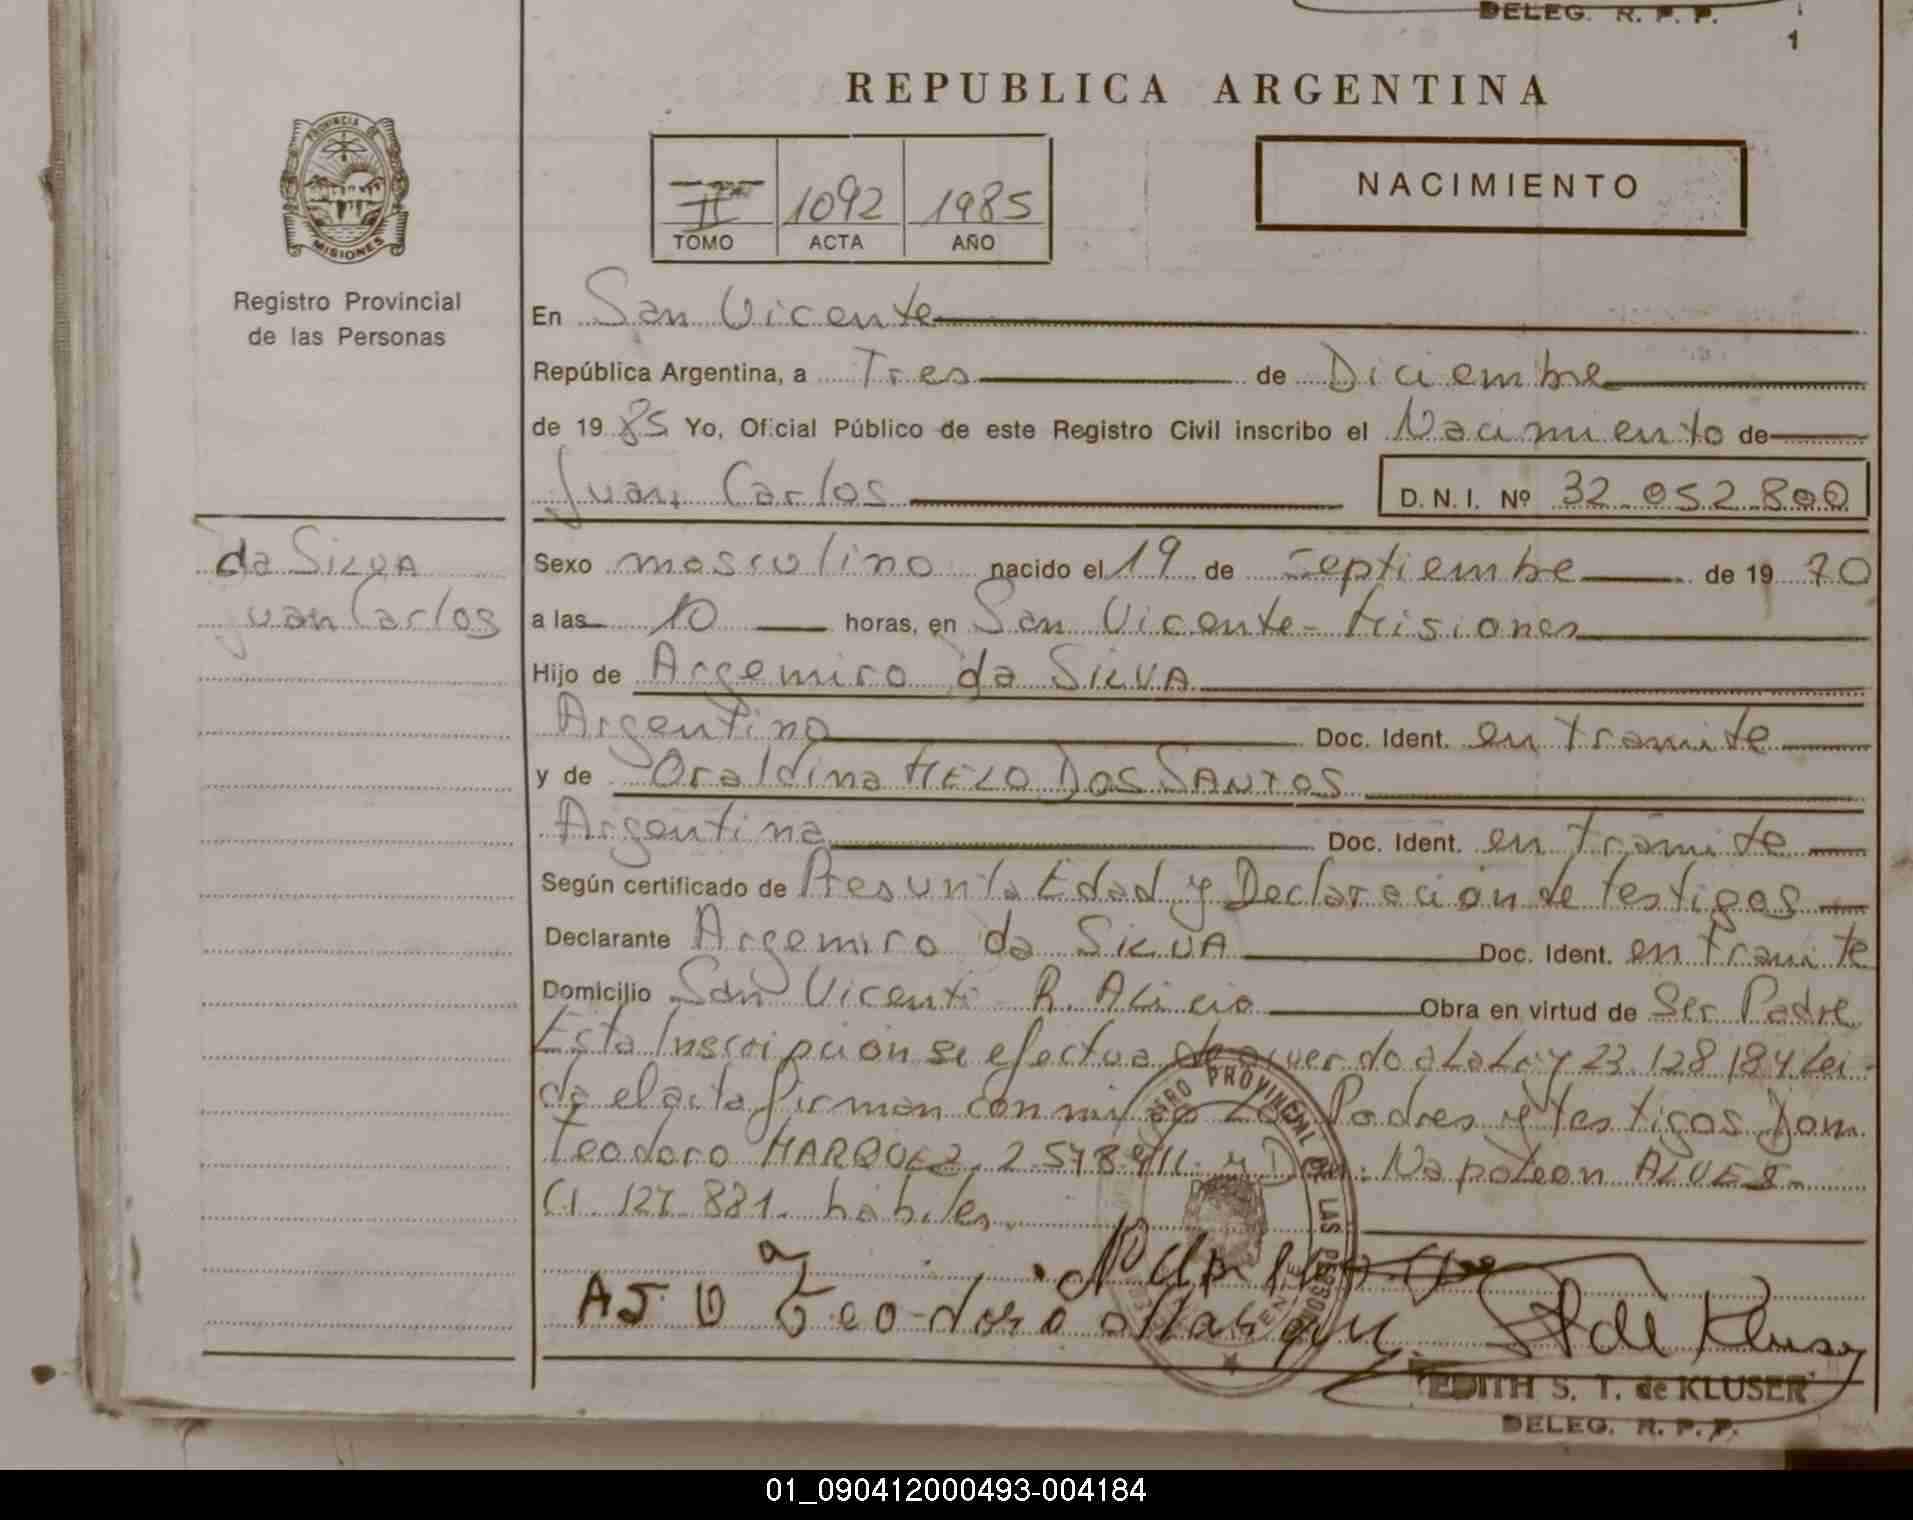 DELEG. R. P. P.
1
REPUBLICA ARGENTINA
PROVINCIA DE
MISIONES
Registro Provincial
de las Personas
II 1092 1985
TOMO ACTA AÑO
NACIMIENTO
En San Vicente
República Argentina, a Tres de Diciembre
de 1985 Yo, Oficial Público de este Registro Civil inscribo el Nacimiento de
Juan Carlos D. N. I. Nº 32.052.800
da SILVA
Juan Carlos
Sexo masculino nacido el 19 de septiembre de 1970
a las 10 horas, en San Vicente - Misiones
Hijo de Argemiro da SILVA
Argentino Doc. Ident. en tramite
y de Oraldina MELO DOS SANTOS
Argentina Doc. Ident. en tramite
Según certificado de Presunta Edad y Declaracion de testigos
Declarante Argemiro da SILVA Doc. Ident. en tramite
Domicilio San Vicente R. Alicia Obra en virtud de Ser Padre
Esta Inscripcion se efectua de acuerdo a La Ley 23.128/84 Lei-
da el acta firman conmigo Los Padres y testigos Don
Teodoro MARQUEZ. 2.548.911. y Don: Napoleon ALVES.
CI. 127.881. habiles.
A J V Teodoro Marquez
S T de Kluser
EDITH S. T. de KLUSER
DELEG. R. P. P.
01_090412000493-004184